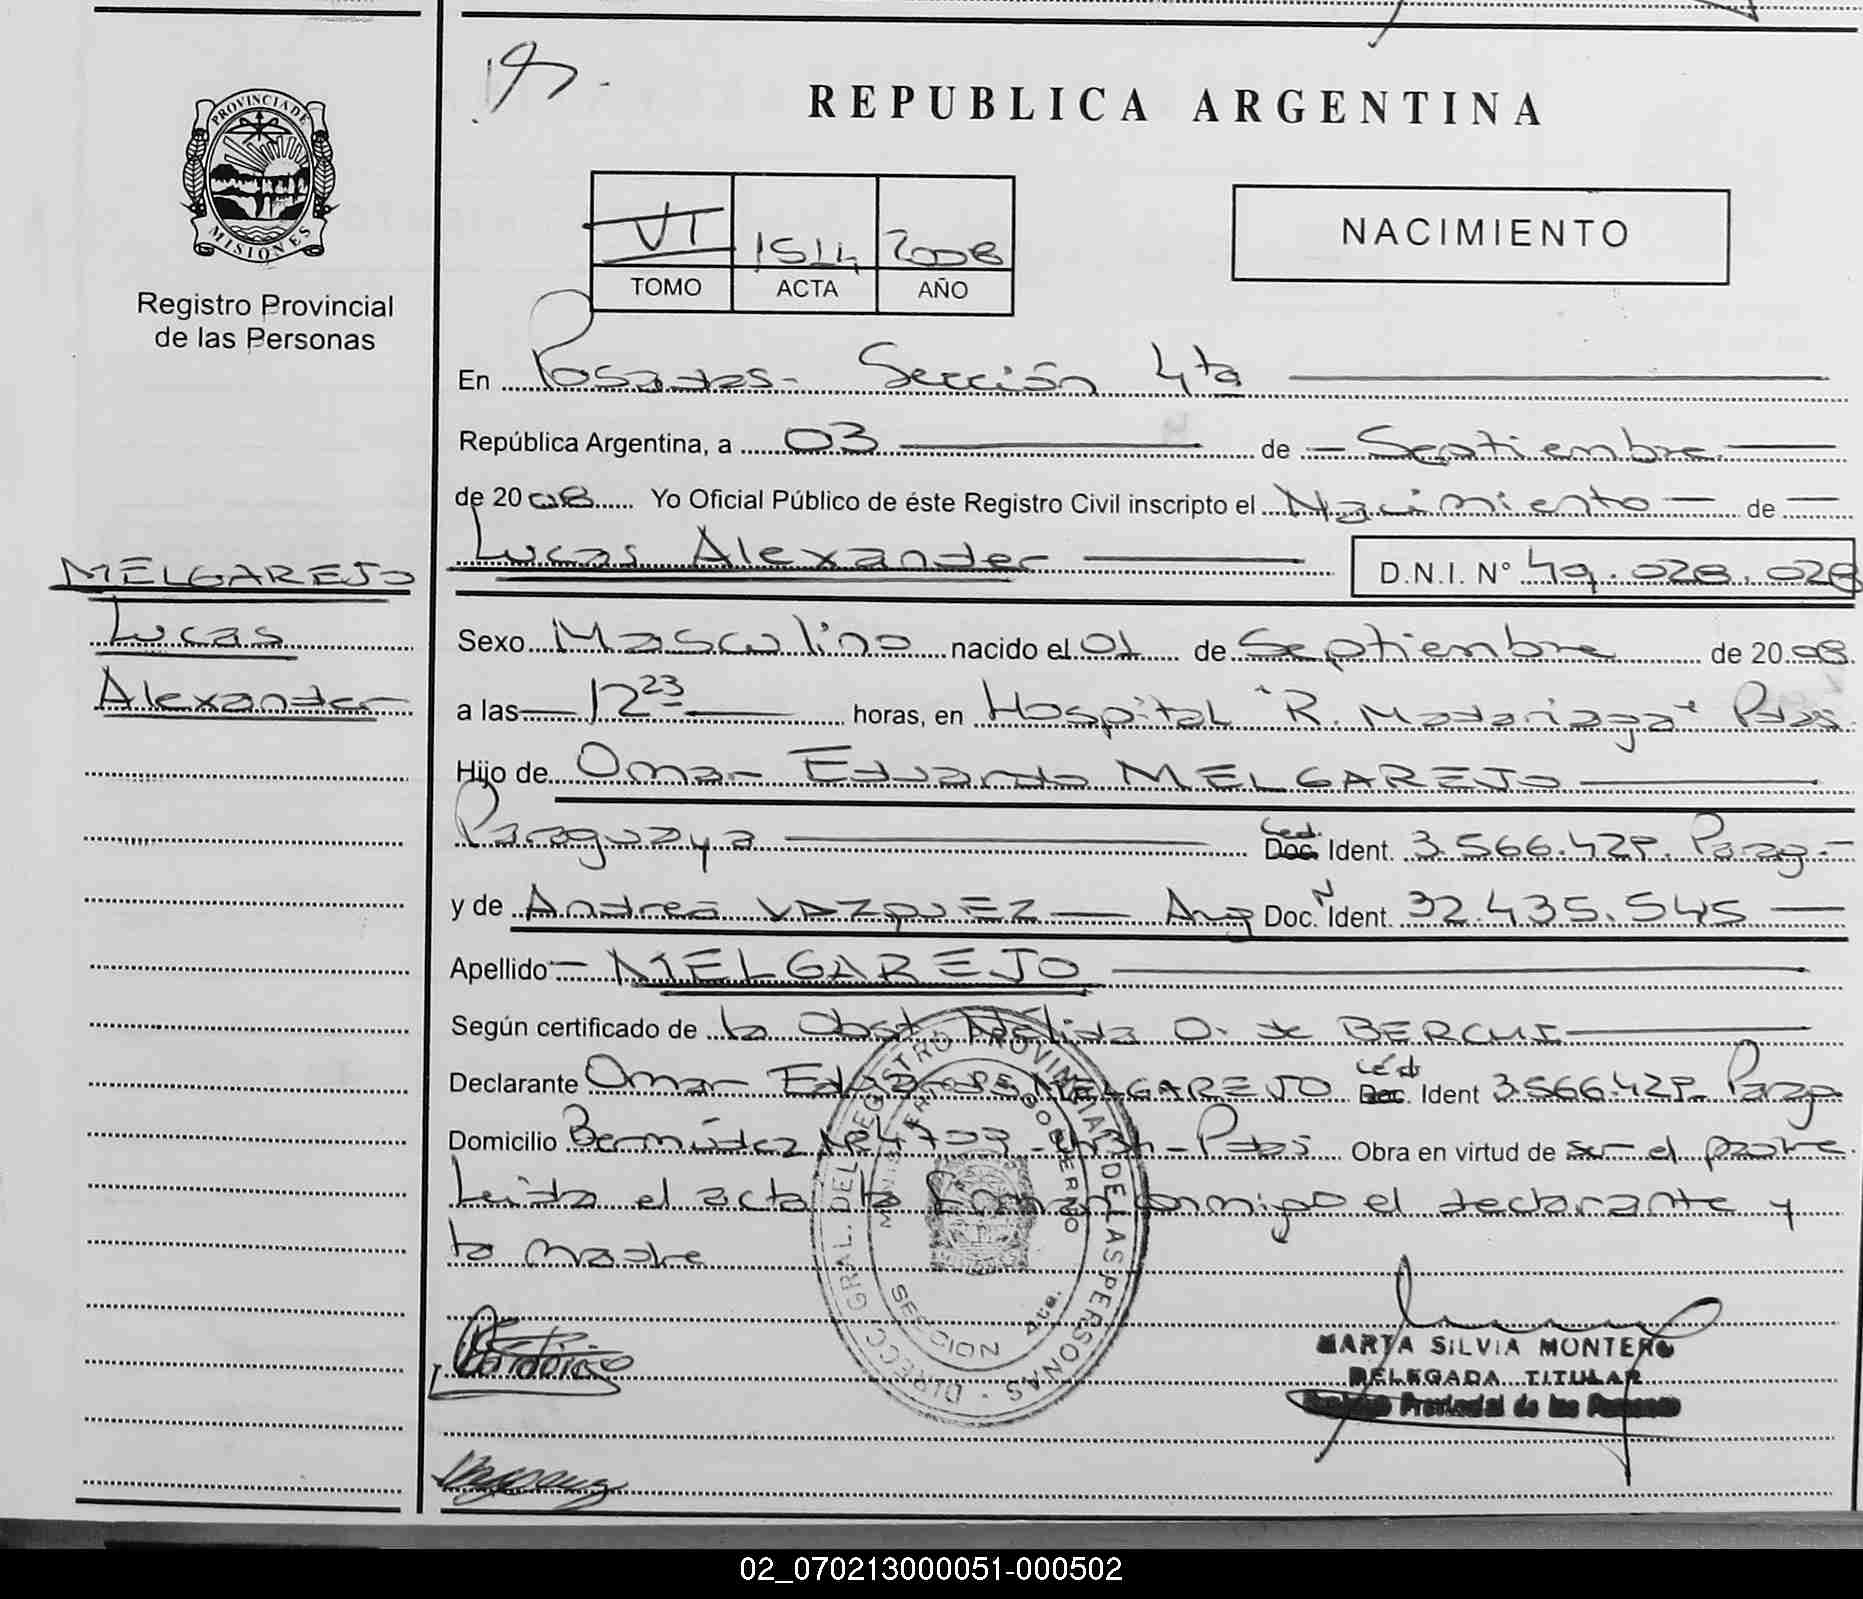 REPUBLICA ARGENTINA
PROVINCIA DE
MISIONES
Registro Provincial
de las Personas
VI 1514 2008
TOMO ACTA AÑO
NACIMIENTO
En Posadas - Sección 4ta
República Argentina, a 03 de Septiembre
de 2008 Yo Oficial Público de éste Registro Civil inscripto el Nacimiento de
Lucas Alexander D.N.I. Nº 49.028.028
MELGAREJO
Lucas
Alexander
Sexo Masculino nacido el 01 de Septiembre de 2008
a las 12 23 horas, en Hospital "R. Madariaga" Pdas.
Hijo de Omar Eduardo MELGAREJO
Paraguaya Ced. Doc. Ident. 3.566.429. Parag.
y de Andrea VAZQUEZ Arg Doc. N Ident. 32.435.545
Apellido MELGAREJO
Según certificado de la Obst. Nélida O. de
Declarante Omar Eduardo MELGAREJO Céd Doc. Ident 3.566.429. Parag.
Domicilio Bermúdez Nº Pdas Obra en virtud de ser el padre.
Leida el acta la firman conmigo el declarante y
la madre
DIRECC. GRAL. DEL REGISTRO PROVINCIAL DE LAS PERSONAS
MINISTERIO DE GOBIERNO
SECCION 4ta.
MARTA SILVIA MONTERO
DELEGADA TITULAR
Provincial de las Personas
02_070213000051-000502